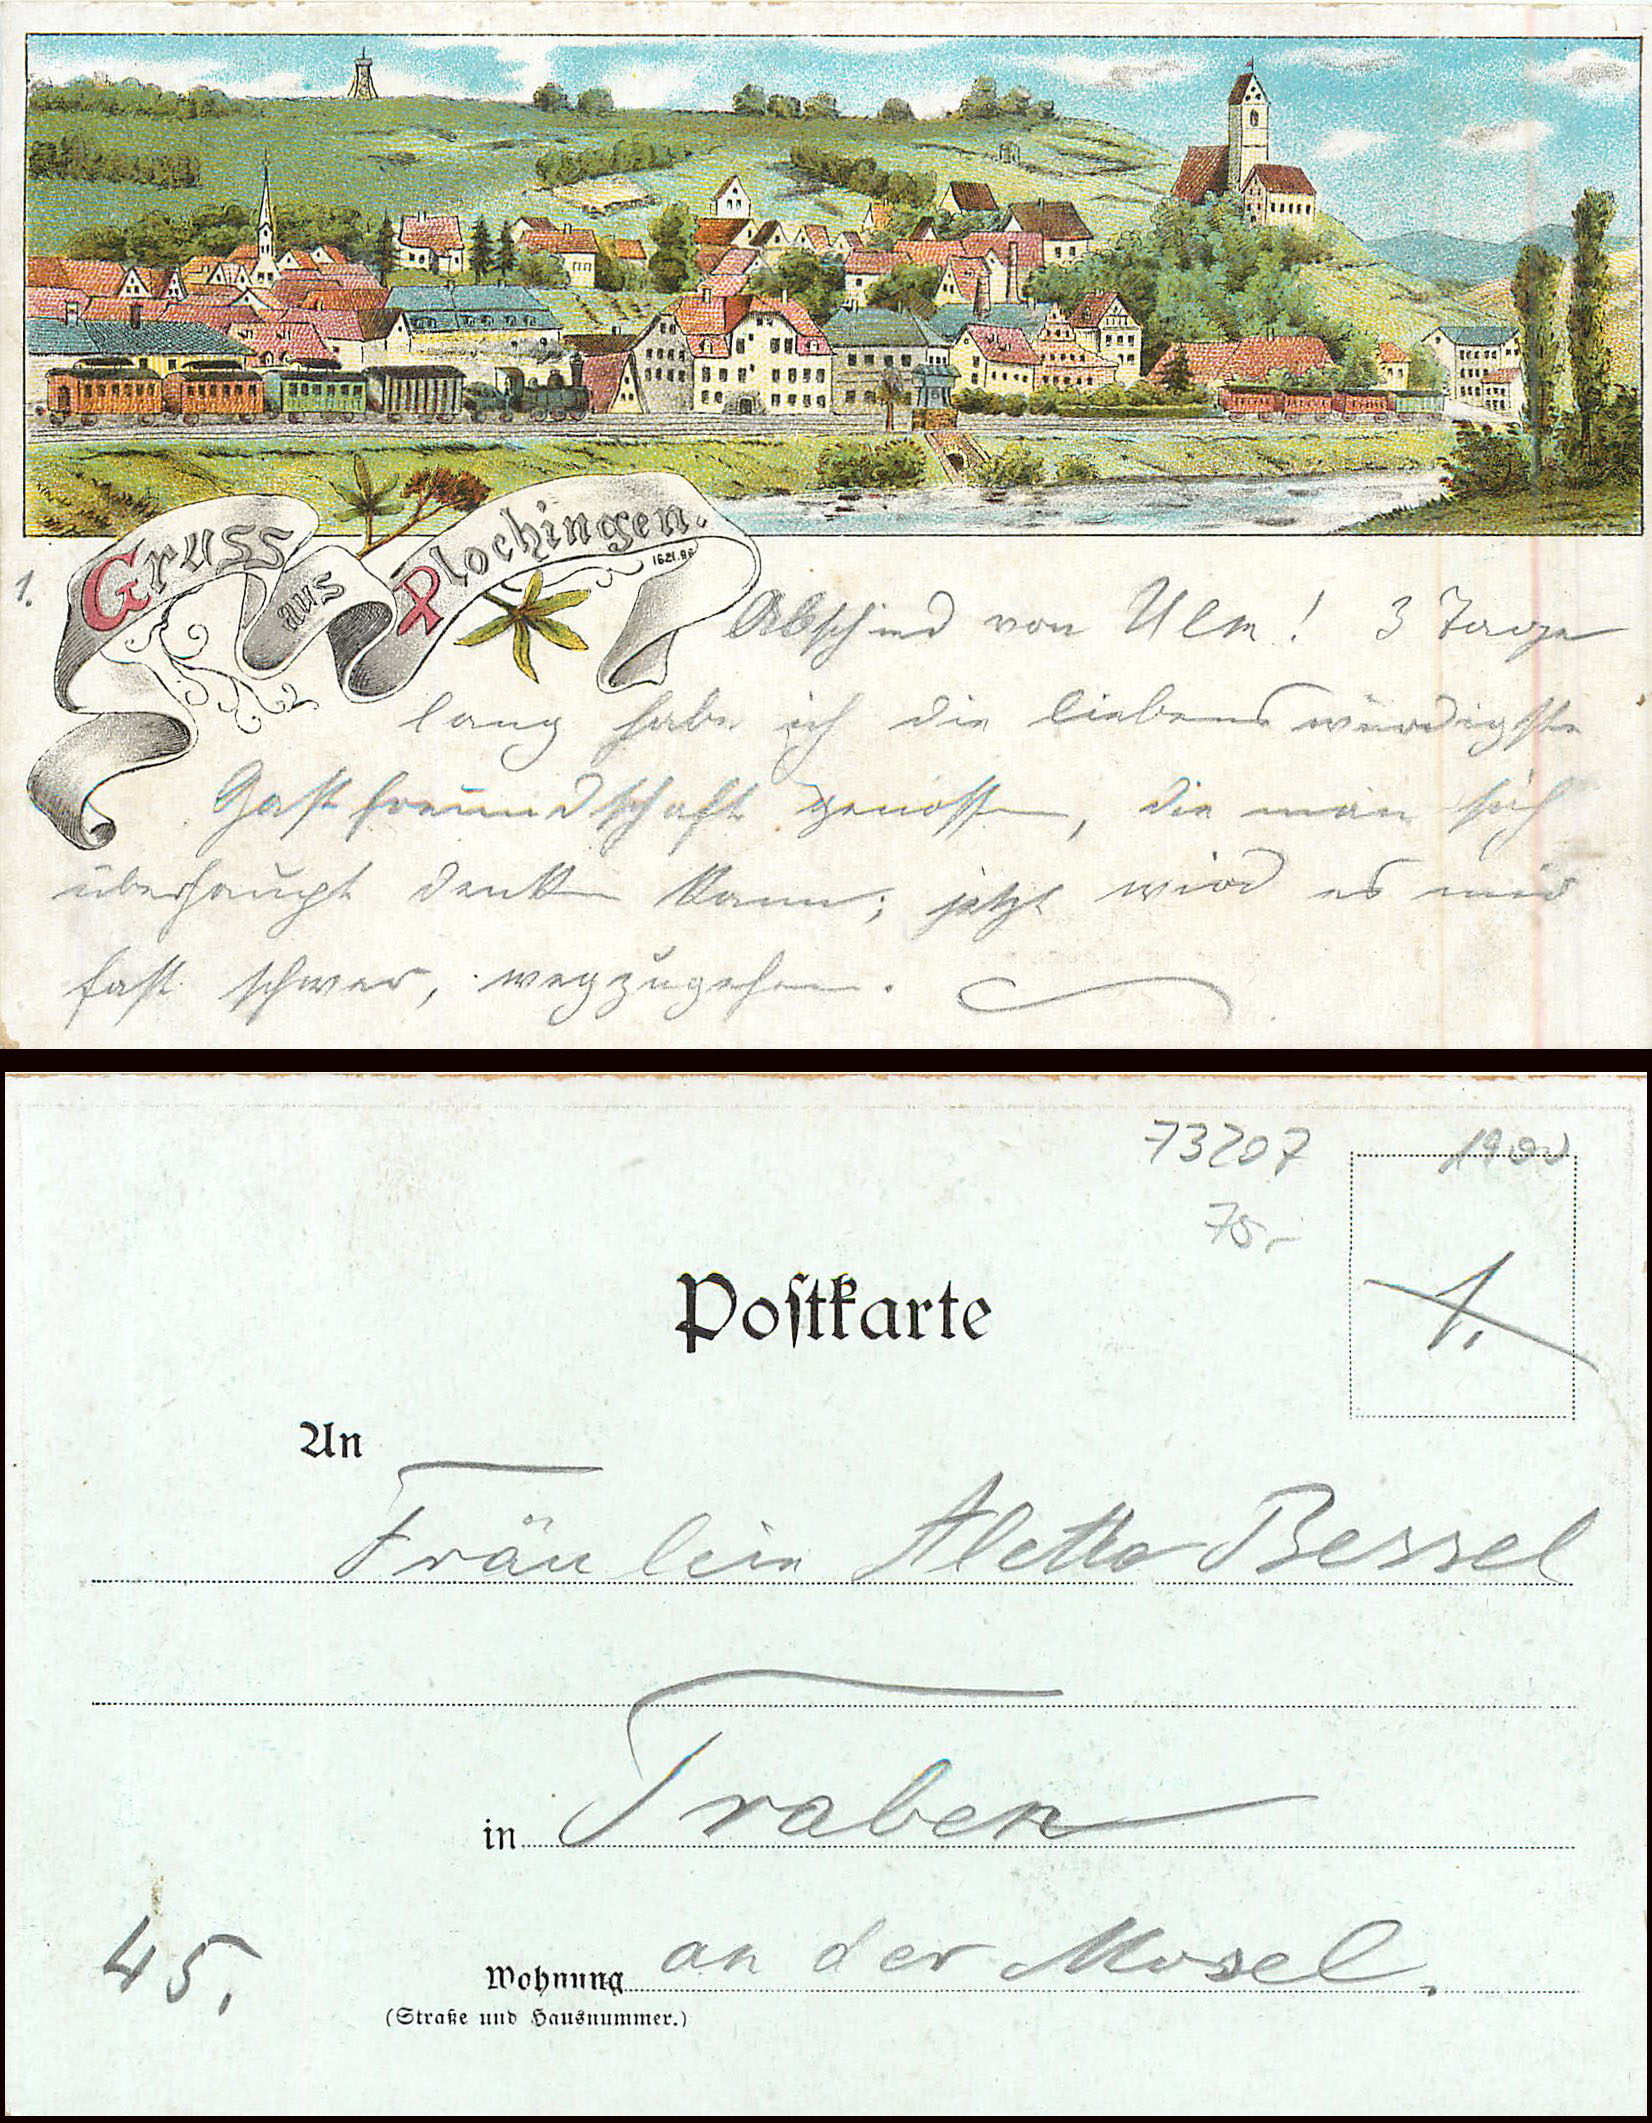 Gruss
aus
Plochingen.
1621.98
1.
Abschied von Ulm! 3 Tage
lang habe ich die liebenswürdigste
Gastfreundschaft genossen, die man sich
überhaupt denken kann; jetzt wird es mir
fast schwer, wegzugehen.
73207
1900
75,-
Postkarte
1.
An
Fräulein Aletta Bessel
in Traben
Wohnung an der Mosel.
(Straße und Hausnummer.)
45.